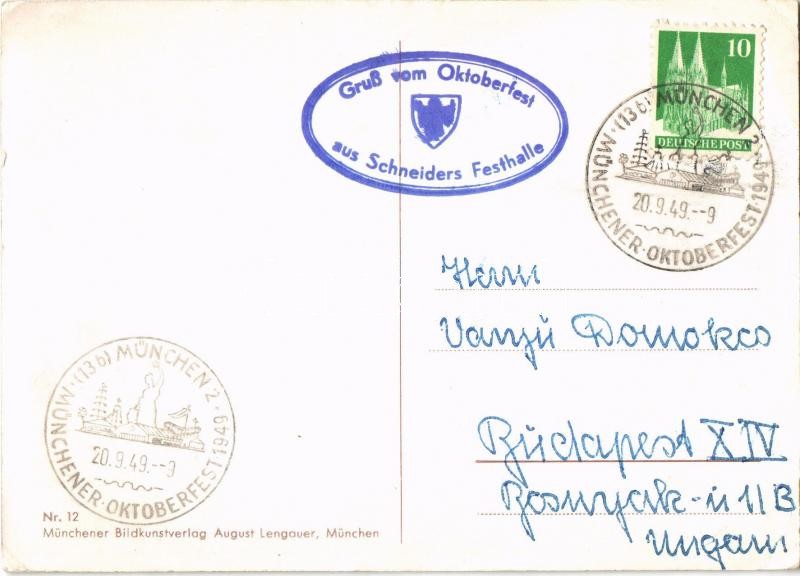 Gruß vom Oktoberfest
aus Schneiders Festhalle
10
DEUTSCHE POST
(13b) MÜNCHEN 2
20.9.49.--9
MÜNCHENER·OKTOBERFEST·1949
Herrn
Vanyú Domokco
Budapest XIV
Bosnyák-u 1/B
Ungarn
(13b) MÜNCHEN 2
20.9.49.--9
MÜNCHENER·OKTOBERFEST 1949
Nr. 12
Münchener Bildkunstverlag August Lengauer, München